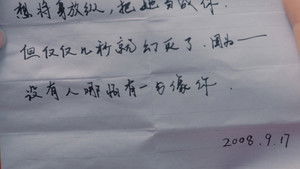 想将身放纵,把她当成你.
但仅仅几秒就幻灭了.因为——
没有人哪怕有一点像你.
2008.9.17